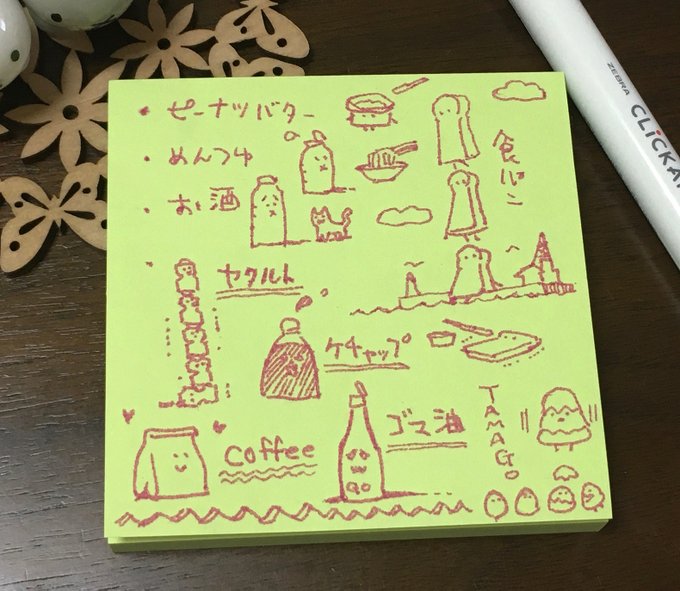 ・ピーナツバター
・めんつゆ
・お酒
食パン
ヤクルト
ケチャップ
coffee
ゴマ油
TAMAGO
ZEBRA